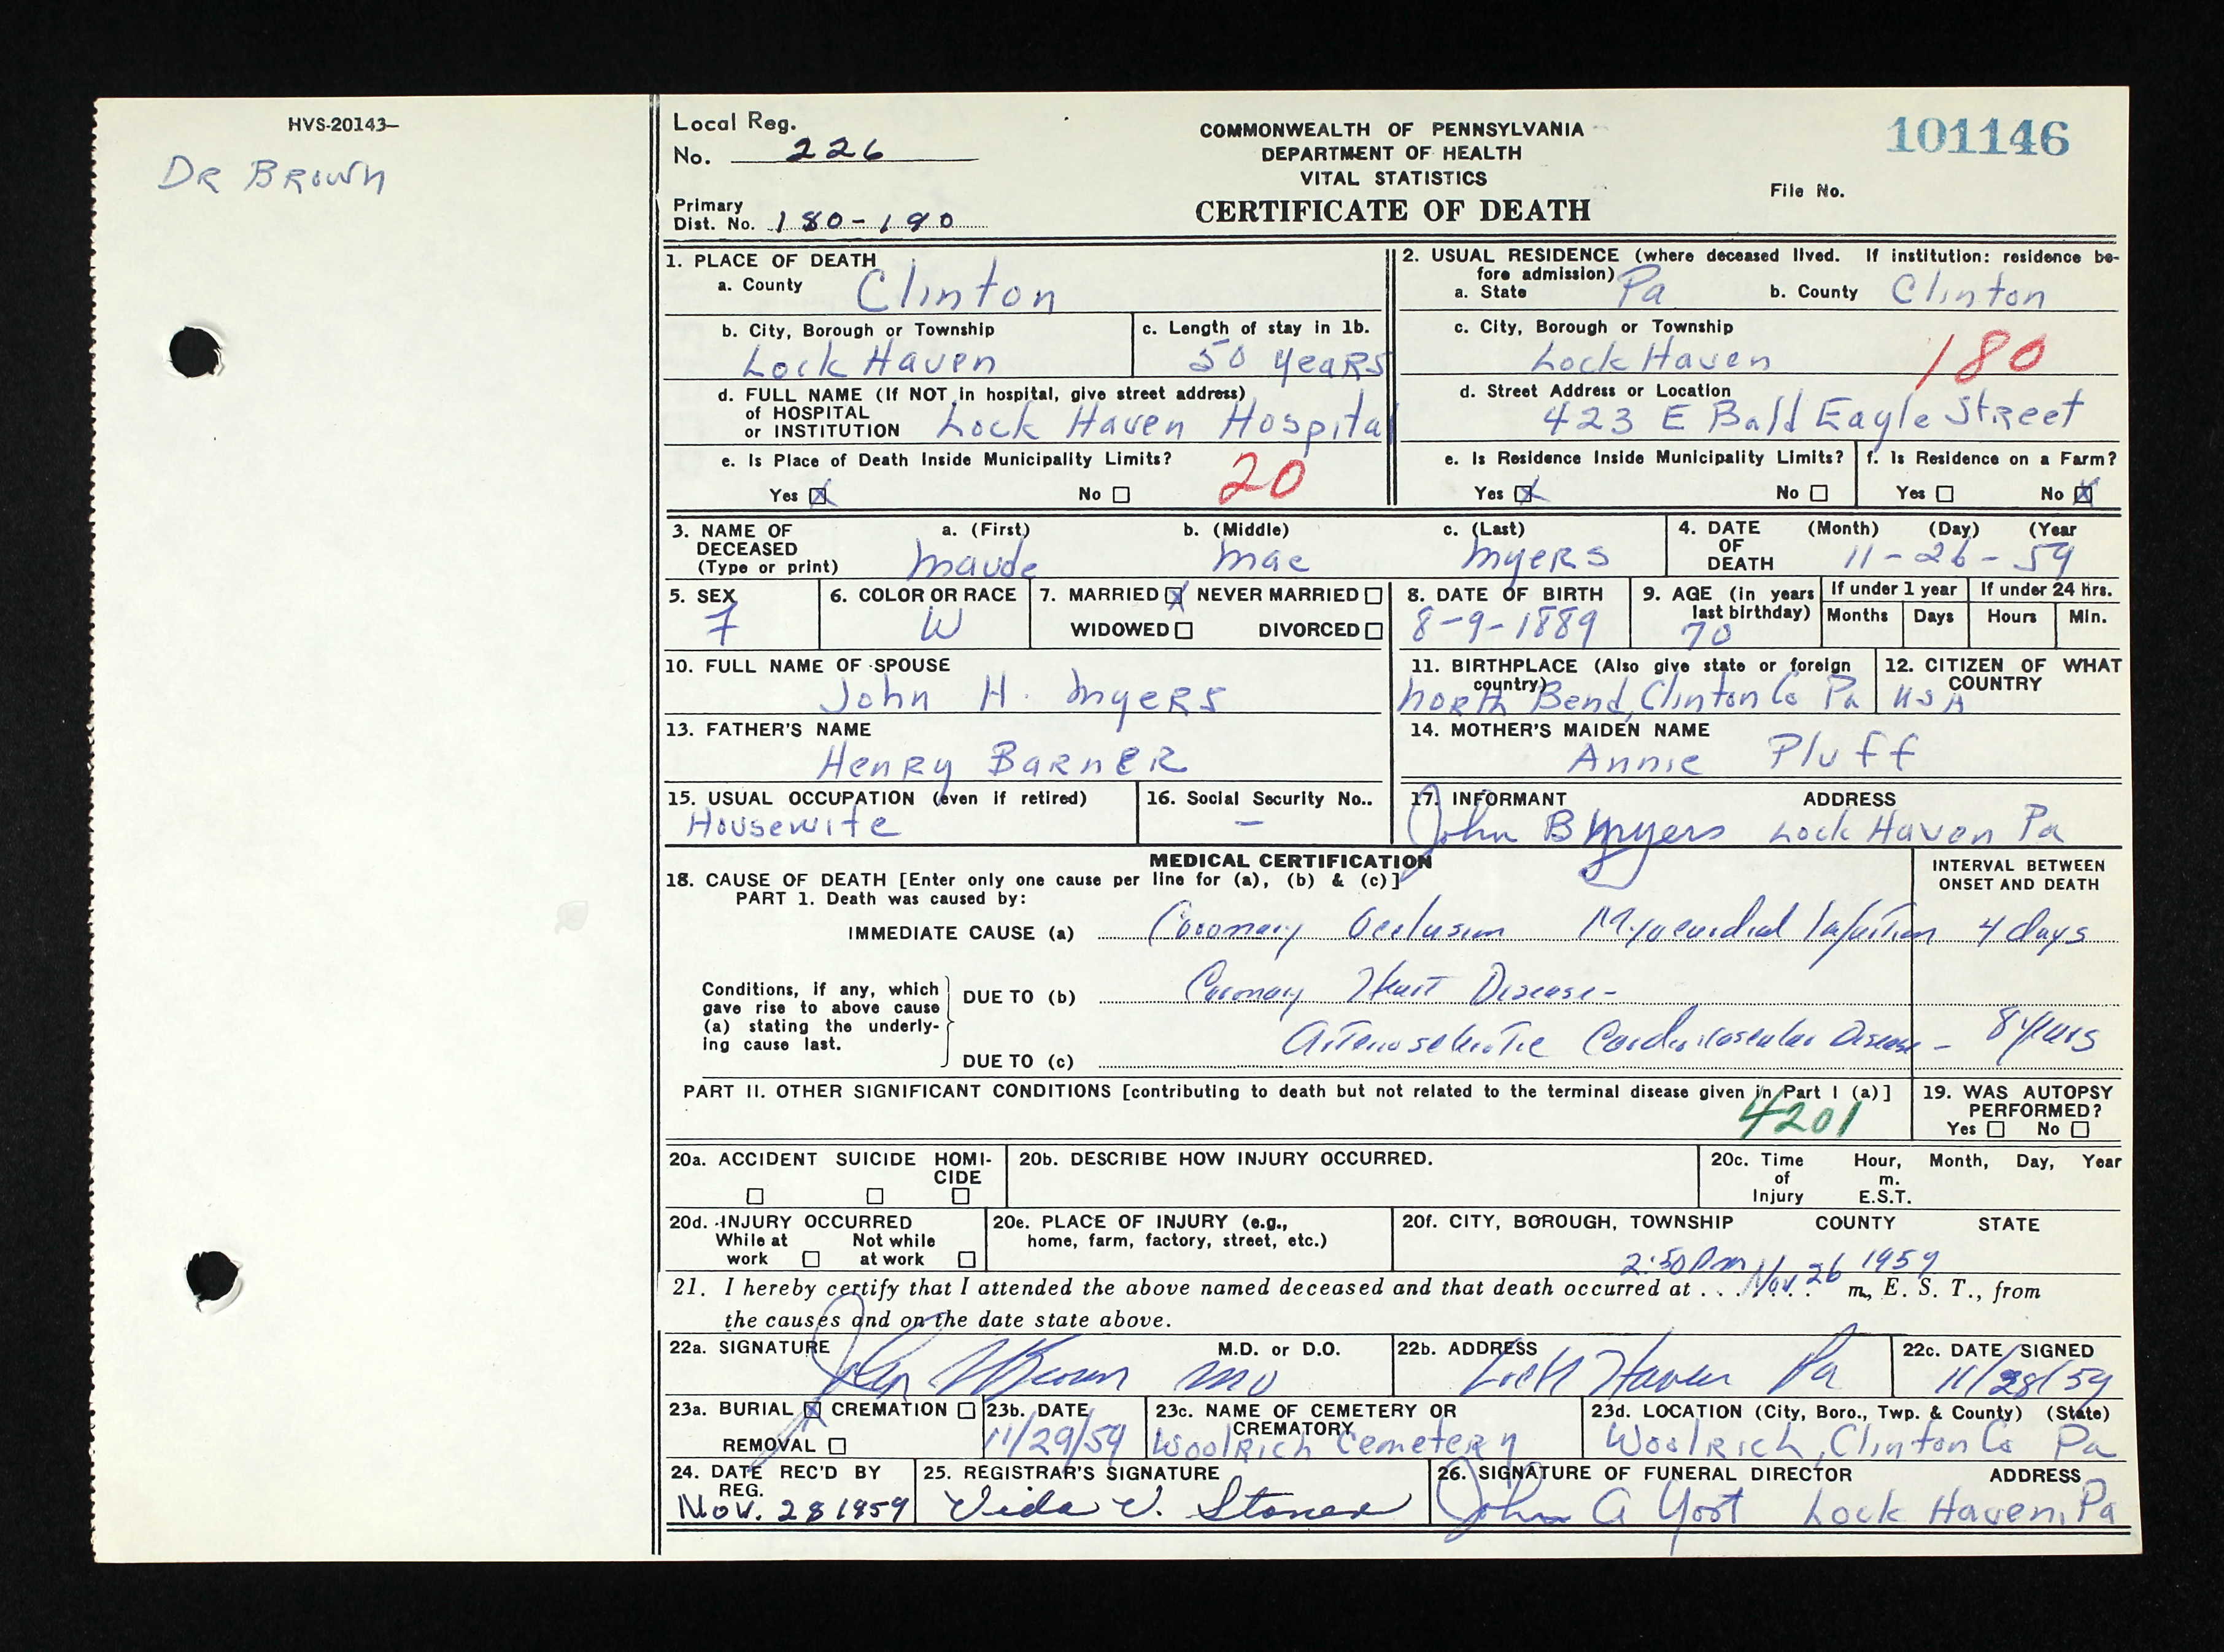 HVS-20143–
DR BROWN
Local Reg.
No. 226
Primary
Dist. No. 180-190
COMMONWEALTH OF PENNSYLVANIA
DEPARTMENT OF HEALTH
VITAL STATISTICS
CERTIFICATE OF DEATH
101146
File No.
1. PLACE OF DEATH
a. County Clinton
b. City, Borough or Township
Lock Haven
c. Length of stay in 1b.
50 years
d. FULL NAME (If NOT in hospital, give street address)
of HOSPITAL
or INSTITUTION Lock Haven Hospital
e. Is Place of Death Inside Municipality Limits?
Yes ☒ No ☐ 20
2. USUAL RESIDENCE (where deceased lived. If institution: residence be-
fore admission)
a. State Pa b. County Clinton
c. City, Borough or Township
Lock Haven 180
d. Street Address or Location
423 E Bald Eagle Street
e. Is Residence Inside Municipality Limits?
Yes ☒ No ☐
f. Is Residence on a Farm?
Yes ☐ No ☒
3. NAME OF DECEASED (Type or print)
a. (First) b. (Middle) c. (Last)
Maude Mae Myers
4. DATE OF DEATH (Month) (Day) (Year
11-26-59
5. SEX
F
6. COLOR OR RACE
W
7. MARRIED ☒ NEVER MARRIED ☐
WIDOWED ☐ DIVORCED ☐
8. DATE OF BIRTH
8-9-1889
9. AGE (in years
last birthday)
70
If under 1 year
Months Days
If under 24 hrs.
Hours Min.
10. FULL NAME OF SPOUSE
John H. Myers
11. BIRTHPLACE (Also give state or foreign
country)
North Bend, Clinton Co Pa
12. CITIZEN OF WHAT
COUNTRY
USA
13. FATHER'S NAME
Henry Barner
14. MOTHER'S MAIDEN NAME
Annie Pluff
15. USUAL OCCUPATION (even if retired)
Housewife
16. Social Security No..
–
17. INFORMANT ADDRESS
John B Myers Lock Haven Pa
MEDICAL CERTIFICATION
18. CAUSE OF DEATH [Enter only one cause per line for (a), (b) & (c)]
PART 1. Death was caused by:
INTERVAL BETWEEN
ONSET AND DEATH
IMMEDIATE CAUSE (a) Coronary Occlusion Myocardial 4 days
Conditions, if any, which
gave rise to above cause
(a) stating the underly-
ing cause last.
DUE TO (b) Coronary Heart Disease-
DUE TO (c) Arteriosclerotic Cardiovascular Disease - 8 years
PART II. OTHER SIGNIFICANT CONDITIONS [contributing to death but not related to the terminal disease given in Part I (a)]
4201
19. WAS AUTOPSY
PERFORMED?
Yes ☐ No ☐
20a. ACCIDENT SUICIDE HOMI-
CIDE
☐ ☐ ☐
20b. DESCRIBE HOW INJURY OCCURRED.
20c. Time Hour, Month, Day, Year
of m.
Injury E.S.T.
20d. INJURY OCCURRED
While at Not while
work ☐ at work ☐
20e. PLACE OF INJURY (e.g.,
home, farm, factory, street, etc.)
20f. CITY, BOROUGH, TOWNSHIP COUNTY STATE
2:50 Pm Nov. 26 1959
21. I hereby certify that I attended the above named deceased and that death occurred at . . . . . . . m, E. S. T., from
the causes and on the date state above.
22a. SIGNATURE M.D. or D.O.
John Brown MD
22b. ADDRESS
Lock Haven Pa
22c. DATE SIGNED
11/28/59
23a. BURIAL ☒ CREMATION ☐
REMOVAL ☐
23b. DATE
11/29/59
23c. NAME OF CEMETERY OR
CREMATORY
Woolrich Cemetery
23d. LOCATION (City, Boro., Twp. & County) (State)
Woolrich, Clinton Co Pa
24. DATE REC'D BY
REG.
Nov. 28 1959
25. REGISTRAR'S SIGNATURE
Vida V. Stoner
26. SIGNATURE OF FUNERAL DIRECTOR ADDRESS
John A Yost Lock Haven, Pa